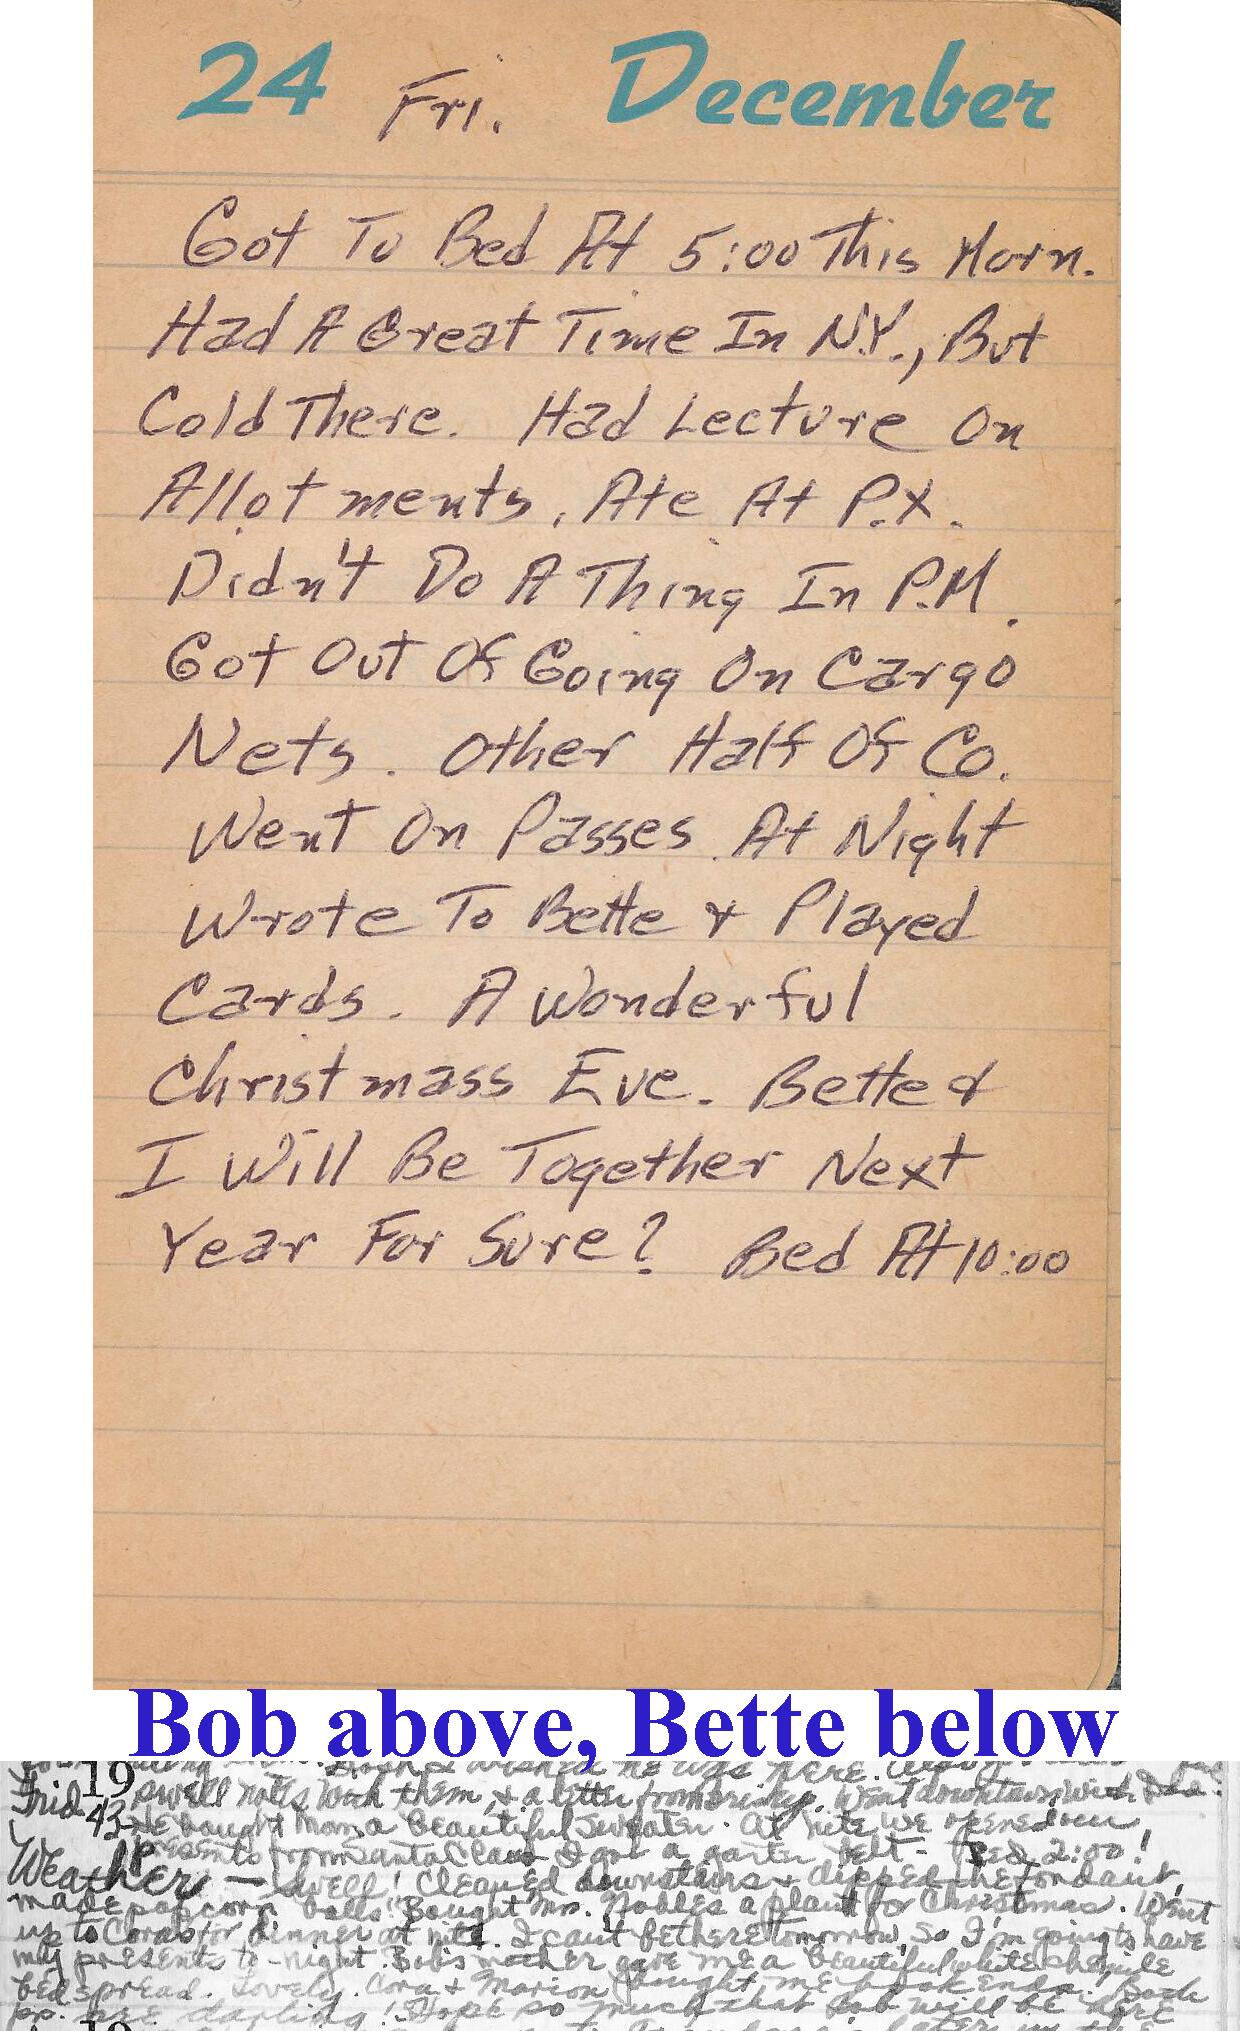 24 Fri. December
Got To Bed At 5:00 This Morn.
Had A Great Time In N.Y., But
Cold There. Had Lecture On
Allotments. Ate At P.X.
Didn't Do A Thing In P.M.
Got Out Of Going On Cargo
Nets. Other Half Of Co.
Went On Passes. At Night
Wrote To Bette & Played
Cards. A Wonderful
Christmass Eve. Bette &
I Will Be Together Next
Year For Sure? Bed At 10:00
Bob above, Bette below
& wished he was here.
19
Frid. swell notes with them & a letter from. Went downtown with Dad.
43 He bought Mom a beautiful sweater. At nite we opened our
presents from Santa Claus. I got a garter belt - Bed 2:00!
Weather — swell! Cleaned downstairs & dipped the fondant,
made popcorn balls. Bought Mrs. Nobles a plant for Christmas. Went
up to Coras for dinner at nite. I cant be there tomorrow, so I'm going to have
my presents to-night. Bob's mother gave me a beautiful white shenyle
bed spread. Lovely. Cora & Marion bought me book ends. Both
are darling! Hope so much that Bob will be here
19